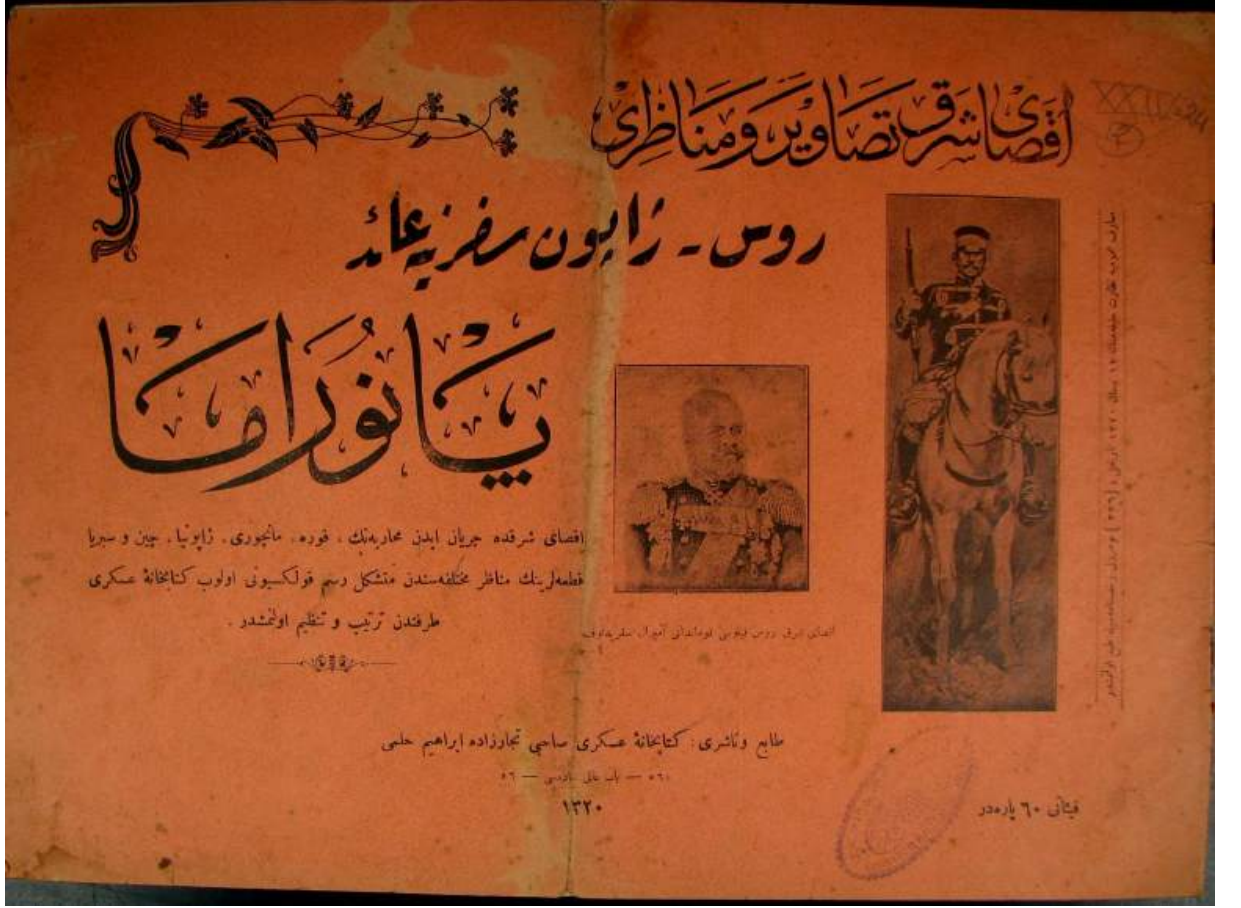 اقصای شرق تصاویر و مناظری
روس - ژاپون سفرینه عائد
پانوراما
اقصای شرقده جریان ایدن محاربه‌نك ، قوره ، مانچوری ، ژاپونیا ، چین و سبریا
قطعه‌لرینك مناظر مختلفه‌سندن متشکل رسم قولکسیونی اولوب کتابخانهٔ عسکری
طرفندن ترتیب و تنظیم اولنمشدر .
اقصای شرق روس قوماندانی آمیرال
معارف عمومیه نظارت جلیله‌سنك ١٣٢٠ رخصتنامه‌سیله طبع اولنمشدر
طابع و ناشری : کتابخانهٔ عسکری صاحبی تجارزاده ابراهیم حلمی
٥٦ — باب عالی جاده‌سی — ٥٦
١٣٢٠
فیئاتی ٦٠ پاره‌در